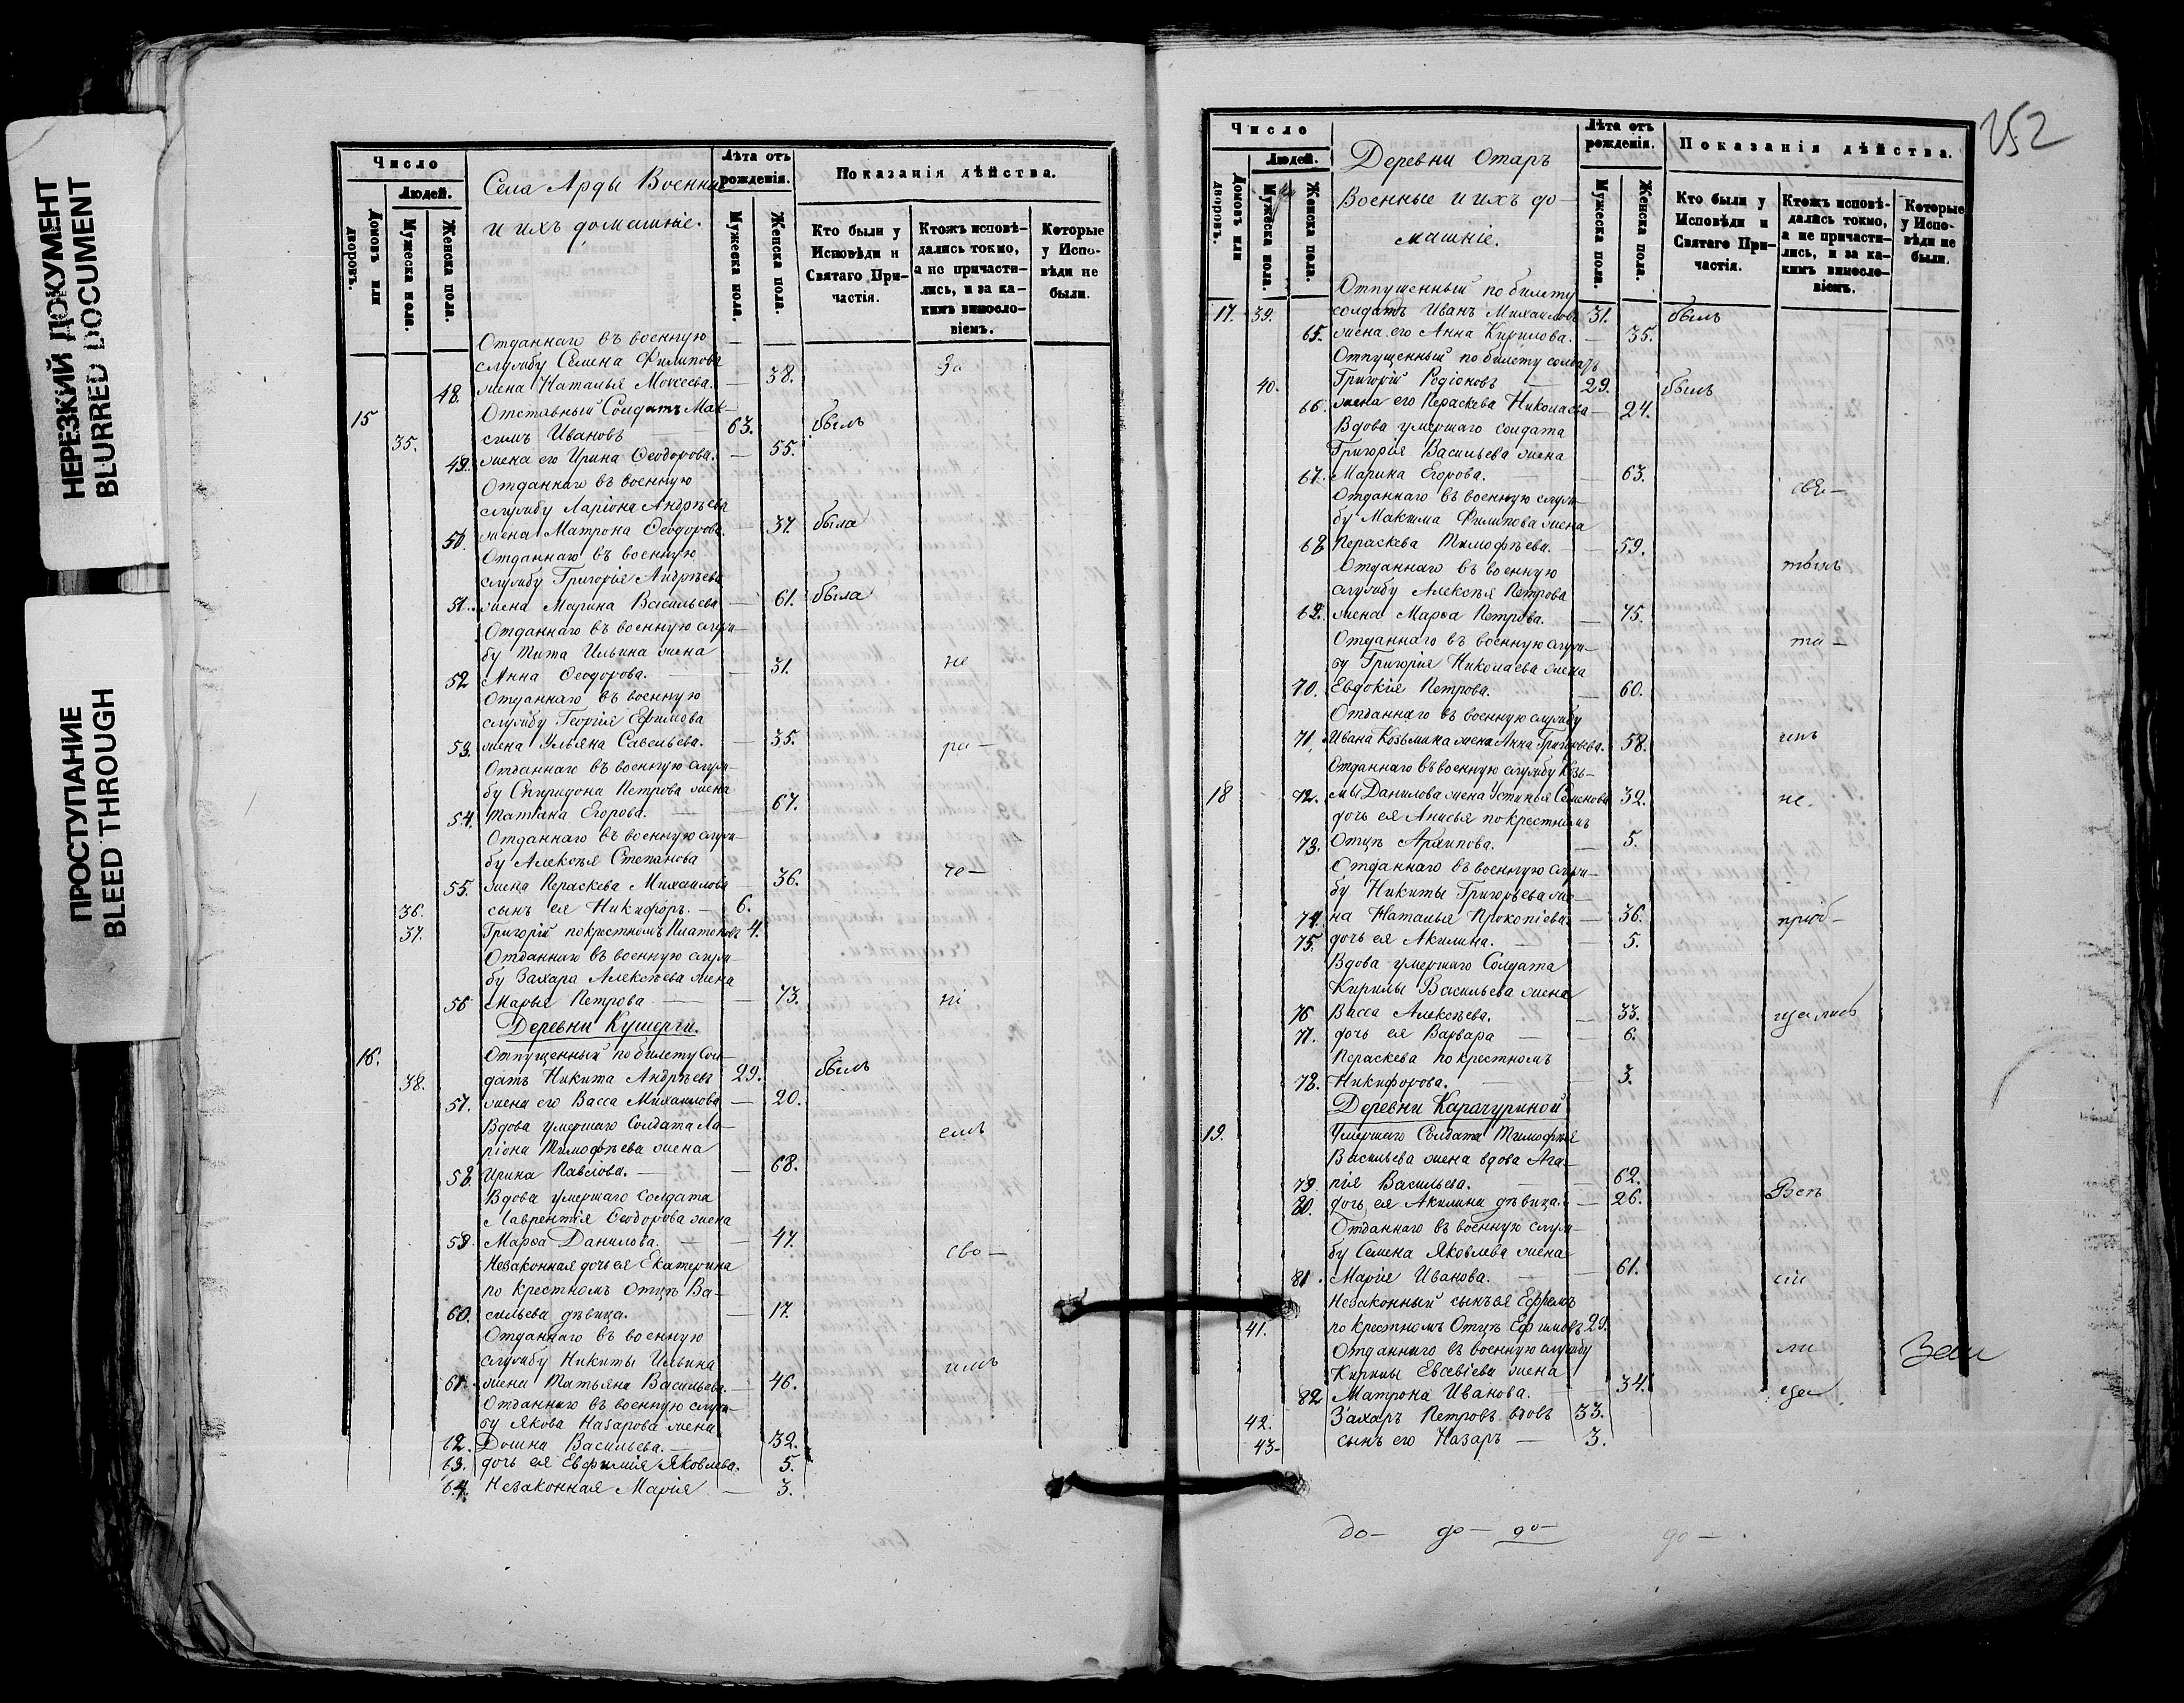 НЕРЕЗКИЙ ДОКУМЕНТ
BLURRED DOCUMENT
ПРОСТУПАНИЕ
BLEED THROUGH
Число
Людей.
Домовъ или дворовъ.
Мужеска пола.
Женска пола.
Села Арды Военные
и ихъ домашніе.
Лѣта отъ рожденія.
Мужеска пола.
Женска пола.
Показанія дѣйства.
Кто были у Исповѣди и Святаго Причастія.
Ктожъ исповѣдались токмо, а не причастились, и за какимъ винословіемъ.
Которые у Исповѣди не были.
Отданнаго въ военную
службу Семена Филипова
48. жена Наталья Моисеева. — 38. За
15 Отставный Солдатъ Мак-
35. симъ Ивановъ 63. былъ
49. жена его Ирина Ѳеодорова. — 55.
Отданнаго въ военную
службу Ларіона Андрѣева
50. жена Матрона Ѳеодорова. 37. была
Отданнаго въ военную
службу Григорія Андрѣева
51. жена Марина Васильева — 61. была
Отданнаго въ военную служ-
бу Тита Ильина жена
52 Анна Ѳеодорова. — 31. не
Отданнаго въ военную
службу Георгія Ефимова
53. жена Ульяна Савельева. — 35. ра-
Отданнаго въ военную служ-
бу Спиридона Петрова жена
54. Татіана Егорова. — 67.
Отданнаго въ военную служ-
бу Алексѣя Степанова
55. жена Параскева Михаилова — 36. че-
36. сынъ ея Никифоръ. — 6.
37. Григорій по крестномъ Платоновъ 4.
Отданнаго въ военную служ-
бу Захара Алексѣева жена
56 Марья Петрова — 73. ні
Деревни Кушерги.
16. Отпущенный по билету Сол-
38. датъ Никита Андрѣевъ 29. былъ
57. жена его Васса Михаилова — 20.
Вдова умершаго Солдата Ла- емъ
ріона Тимофѣева жена
58. Ирина Павлова. — 68.
Вдова умершаго Солдата
Лаврентія Ѳеодорова жена
59. Марѳа Данилова. — 47. сво-
Незаконная дочь ея Екатерина
по крестномъ Отцѣ Ва-
60. сильева дѣвица. — 17.
Отданнаго въ военную
службу Никиты Ильина имъ
61. жена Татьяна Васильева. — 46.
Отданнаго въ военную служ-
бу Якова Назарова жена
62. Домна Васильева. — 32.
63. дочь ея Евфимія Яковлева. 5.
64. Незаконная Марія — 3.
252
Число
Людей.
Домовъ или дворовъ.
Мужеска пола.
Женска пола.
Деревни Отаръ
Военные и ихъ до-
машніе.
Лѣта отъ рожденія.
Мужеска пола.
Женска пола.
Показанія дѣйства.
Кто были у Исповѣди и Святаго Причастія.
Ктожъ исповѣдались токмо, а не причастились, и за какимъ винословіемъ.
Которые у Исповѣди не были.
Отпущенный по билету
17. 39. солдатъ Иванъ Михаиловъ 31. былъ
65. жена его Анна Кирилова. — 35.
Отпущенный по билету солдатъ
40. Григорій Родіоновъ — 29. былъ
66. жена его Параскева Николаева — 24.
Вдова умершаго солдата
Григорія Васильева жена
67. Марина Егорова. — 63. свя-
Отданнаго въ военную служ-
бу Максима Филипова жена
68 Параскева Тимофѣева. — 59.
Отданнаго въ военную тымъ
службу Алексѣя Петрова
69. жена Марѳа Петрова. — 75.
Отданнаго въ военную служ- та-
бу Григорія Николаева жена
70. Евдокія Петрова. — 60.
Отданнаго въ военную службу
71. Ивана Козьмина жена Анна Григорьева. 58. инъ
Отданнаго въ военную службу Козь-
18 72. мы Данилова жена Устинья Семенова 32. не.
дочь ея Анисья по крестномъ
73. Отцѣ Архипова. — 5.
Отданнаго въ военную служ-
бу Никиты Григорьева же-
74. на Наталья Прокопіева. — 36. пріоб-
75. дочь ея Акилина. — 5.
Вдова умершаго Солдата
Кирилы Васильева жена
76 Васса Алексѣева. — 33. щались
77. дочь ея Варвара — 6.
Параскева по крестномъ
78. Никифорова. — 3.
Деревни Карачуриной
19. Умершаго Солдата Тимофѣя
Васильева жена вдова Ага-
79 пія Васильева. — 62. Всѣ
80. дочь ея Акилина дѣвица. — 26.
Отданнаго въ военную служ-
бу Семена Яковлева жена
81. Марія Ивановa. — 61. сіи
Незаконный сынъ ея Ефремъ
41. по крестномъ Отцѣ Ефимовъ 29.
Отданнаго въ военную службу ли
Кирилы Евсевіева жена
82 Матрона Иванова. — 34. ца
42. Захаръ Петровъ вдовъ 33.
43. сынъ его Назаръ — 3.
до- до- до- до-